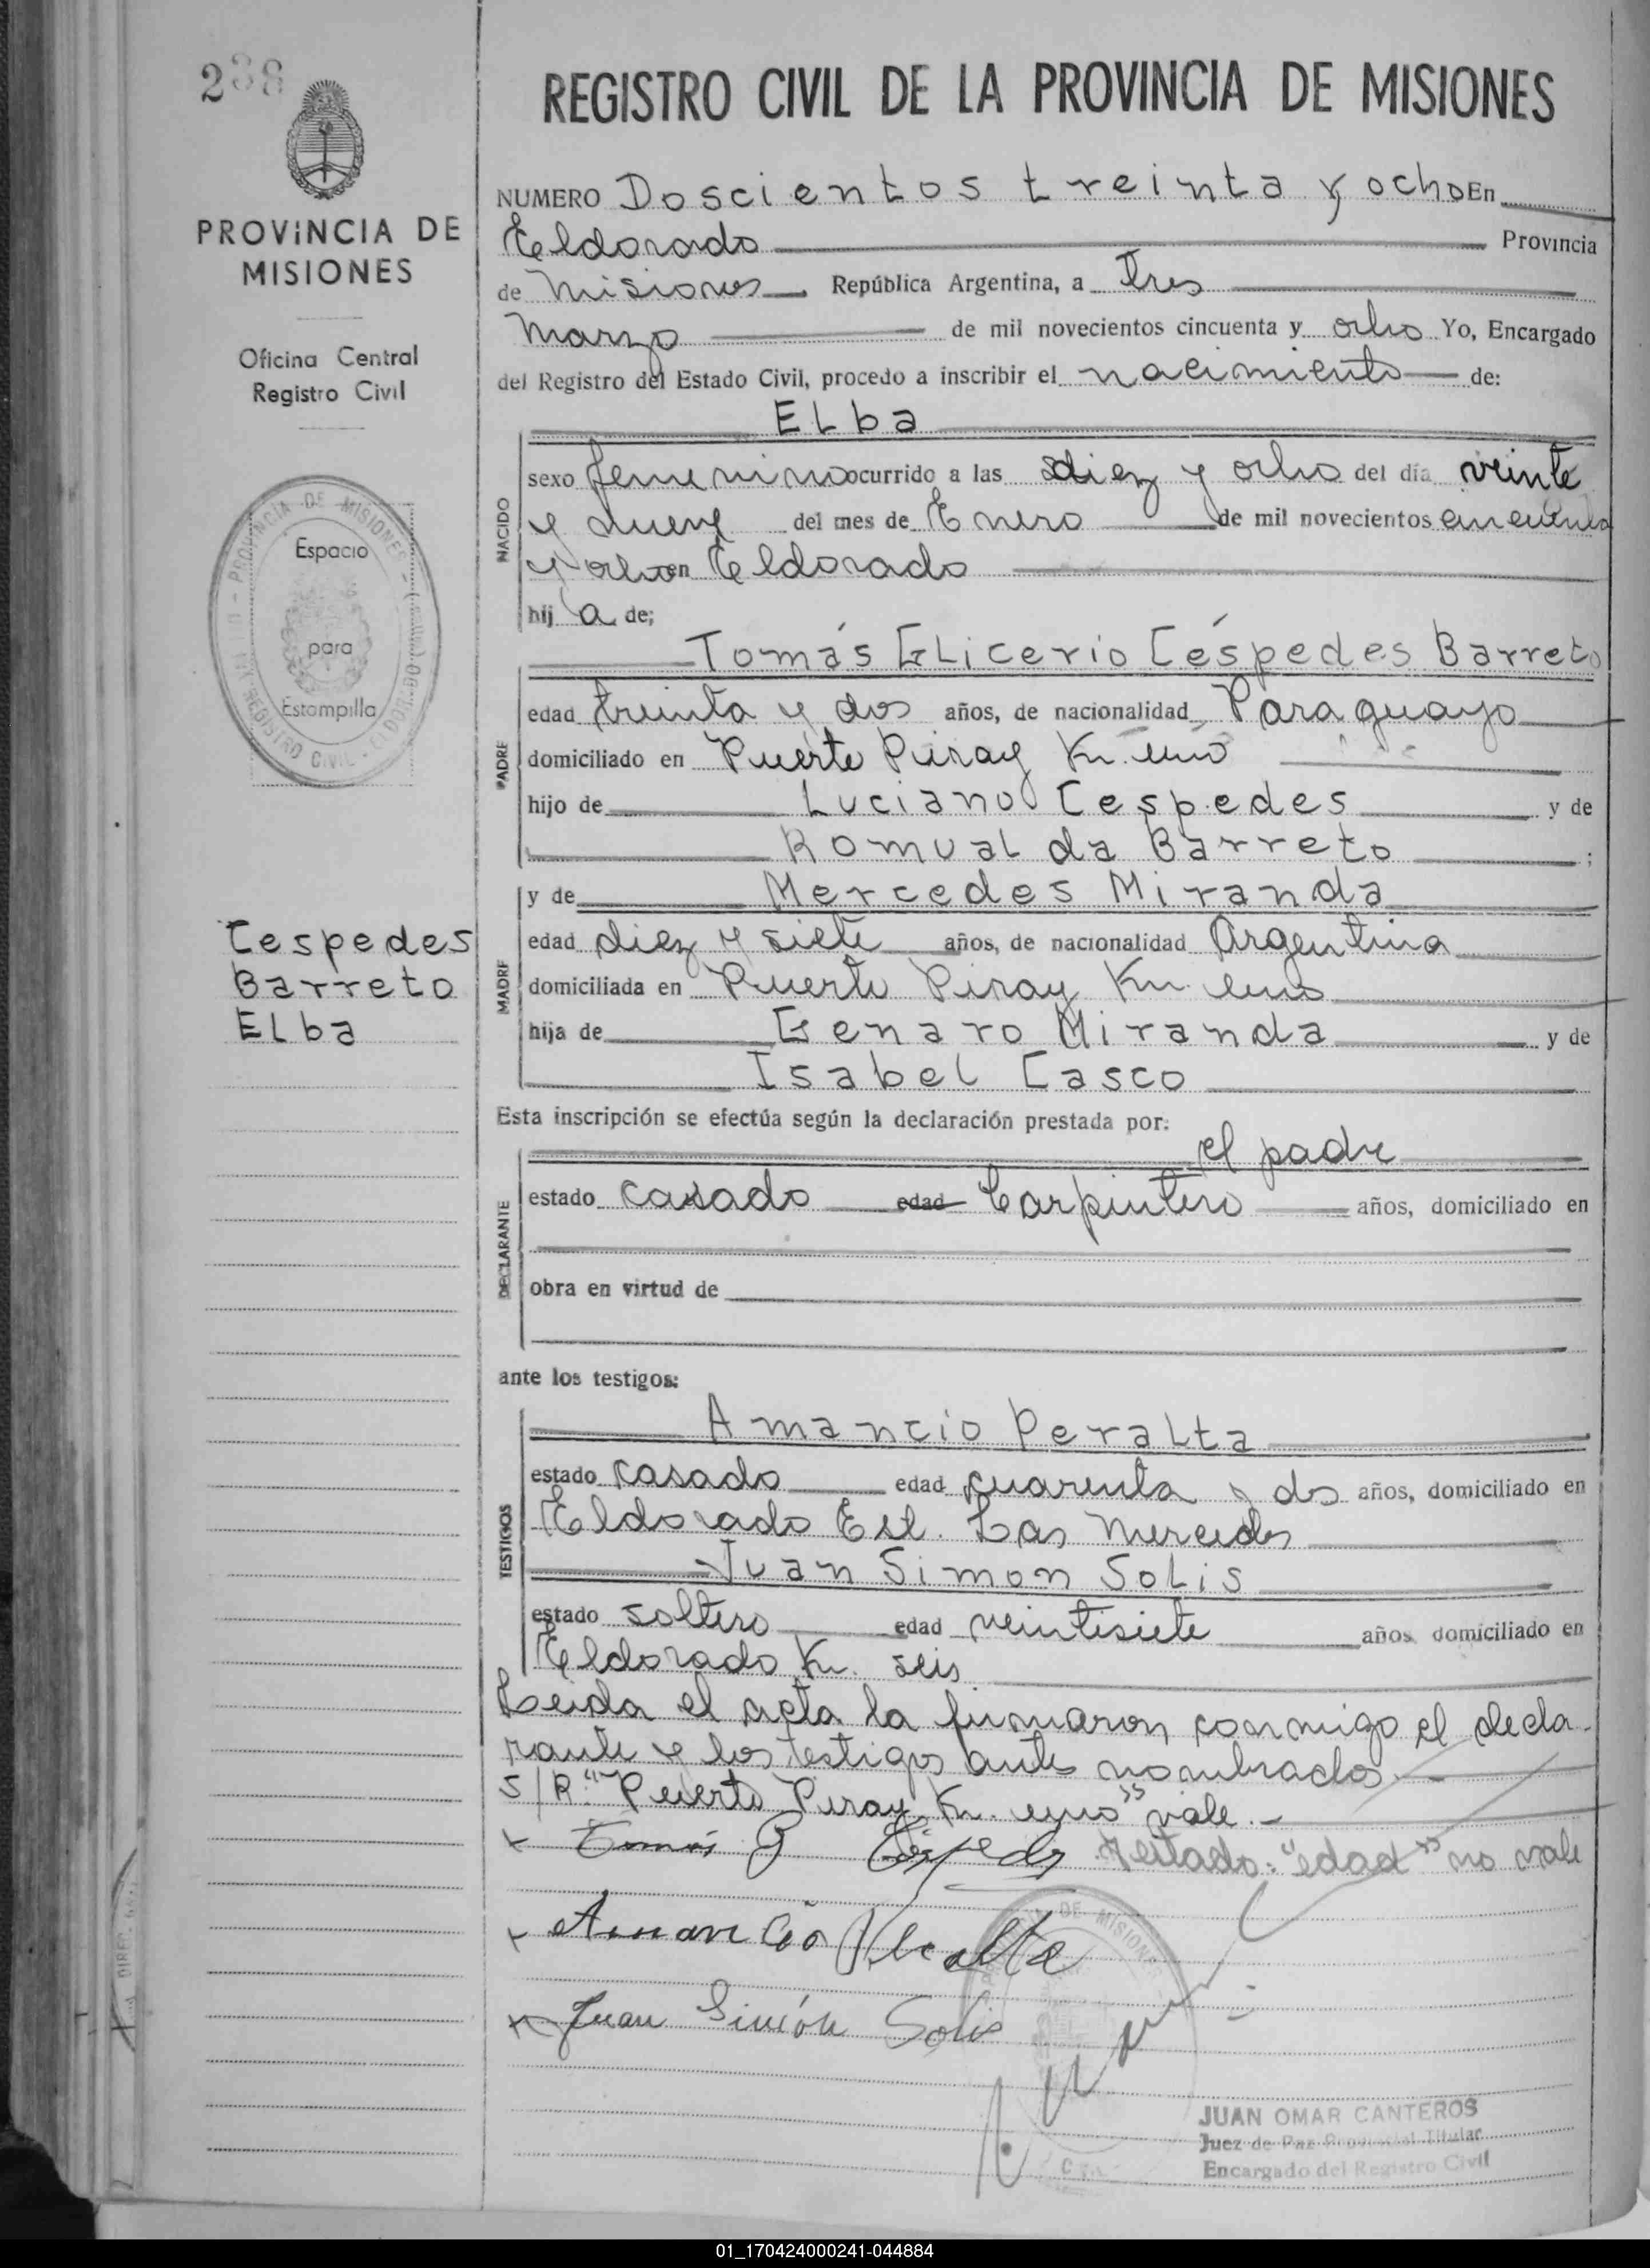 238
PROVINCIA DE
MISIONES
Oficina Central
Registro Civil
PROVINCIA DE MISIONES
REGISTRO CIVIL - ELDORADO
Espacio
para
Estampilla
Cespedes
Barreto
Elba
REGISTRO CIVIL DE LA PROVINCIA DE MISIONES
NUMERO Doscientos treinta y ocho En
Eldorado Provincia
de Misiones República Argentina, a Tres
Marzo de mil novecientos cincuenta y ocho Yo, Encargado
del Registro del Estado Civil, procedo a inscribir el nacimiento de:
Elba
NACIDO
sexo femenino ocurrido a las diez y ocho del día veinte
y nueve del mes de Enero de mil novecientos cincuenta
y ocho en Eldorado
hij a de;
Tomás Glicerio Céspedes Barreto
PADRE
edad treinta y dos años, de nacionalidad Paraguayo
domiciliado en Puerto Piray Km. uno
hijo de Luciano Cespedes y de
Romualda Barreto ;
y de Mercedes Miranda
MADRE
edad diez y siete años, de nacionalidad Argentina
domiciliada en Puerto Piray Km. uno
hija de Genaro Miranda y de
Isabel Casco
Esta inscripción se efectúa según la declaración prestada por:
el padre
DECLARANTE
estado casado edad Carpintero años, domiciliado en
obra en virtud de
ante los testigos:
Amancio Peralta
TESTIGOS
estado casado edad cuarenta y dos años, domiciliado en
Eldorado Est. Las Mercedes
Juan Simon Solis
estado soltero edad veintisiete años domiciliado en
Eldorado Km. seis
Leida el acta la firmaron conmigo el decla-
rante y los testigos antes nombrados.-
S/R: "Puerto Piray Km. uno" vale.-
x Tomás G Céspedes Testado: "edad" no vale
x Amancio Peralta
x Juan Simón Solis
DE MISIONES
JUAN OMAR CANTEROS
Juez de Paz Provincial Titular
Encargado del Registro Civil
01_170424000241-044884